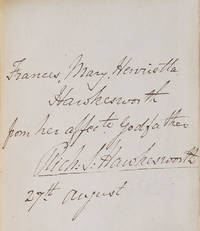 Frances, Mary, Henrietta
Hawkesworth
from her affecte Godfather
Rich. S. Hawkesworth
27th August